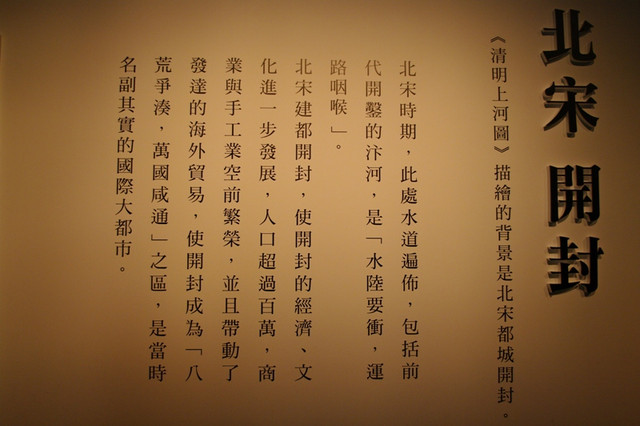 北宋 開封
《清明上河圖》描繪的背景是北宋都城開封。
北宋時期，此處水道遍佈，包括前
代開鑿的汴河，是「水陸要衝，運
路咽喉」。
北宋建都開封，使開封的經濟、文
化進一步發展，人口超過百萬，商
業與手工業空前繁榮，並且帶動了
發達的海外貿易，使開封成為「八
荒爭湊，萬國咸通」之區，是當時
名副其實的國際大都市。